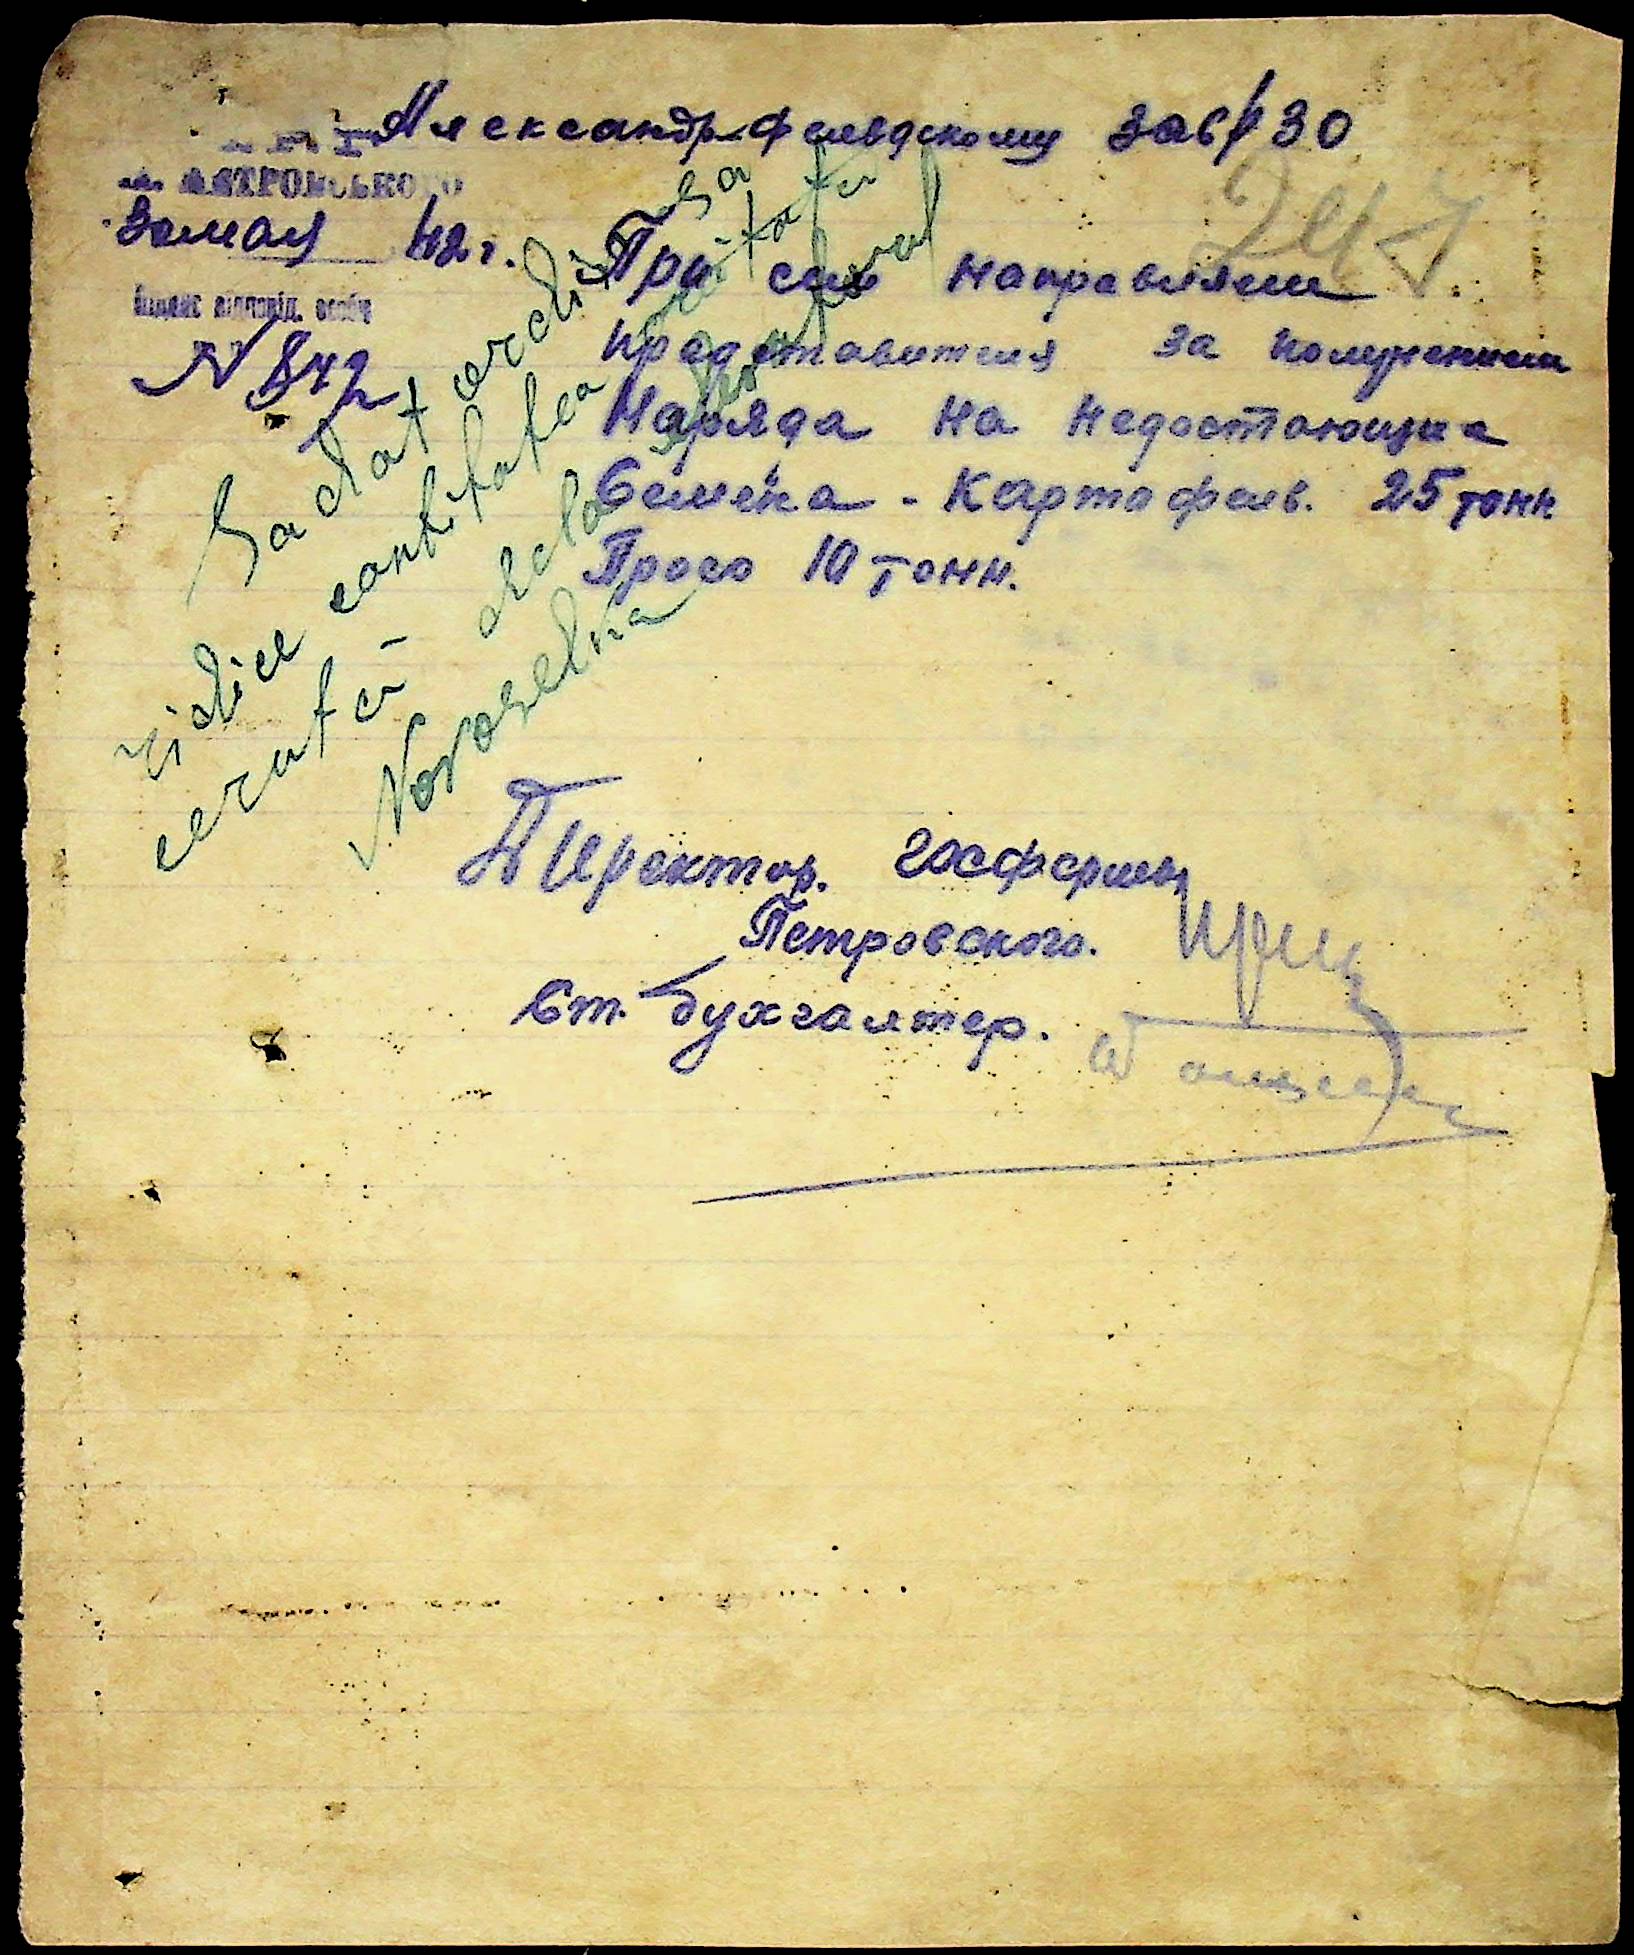 Александрфельдскому завРЗО
ім. ПЕТРОВСЬКОГО
30 мая 42 г.
Індекс відповід. особи
N 842
247
При сем направляем
представителя за получением
Наряда на недостающие
Семена - Картофель. 25 тонн
Просо 10 тонн.
S a dat ordin sa
ridice cantitatea
cerută dela
Novoselka
Директор. госфермы
Петровского.
Ст. бухгалтер.